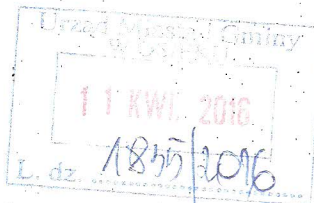 Urząd Miasta i Gminy
11 KWI. 2016
L. dz. 1855/2016